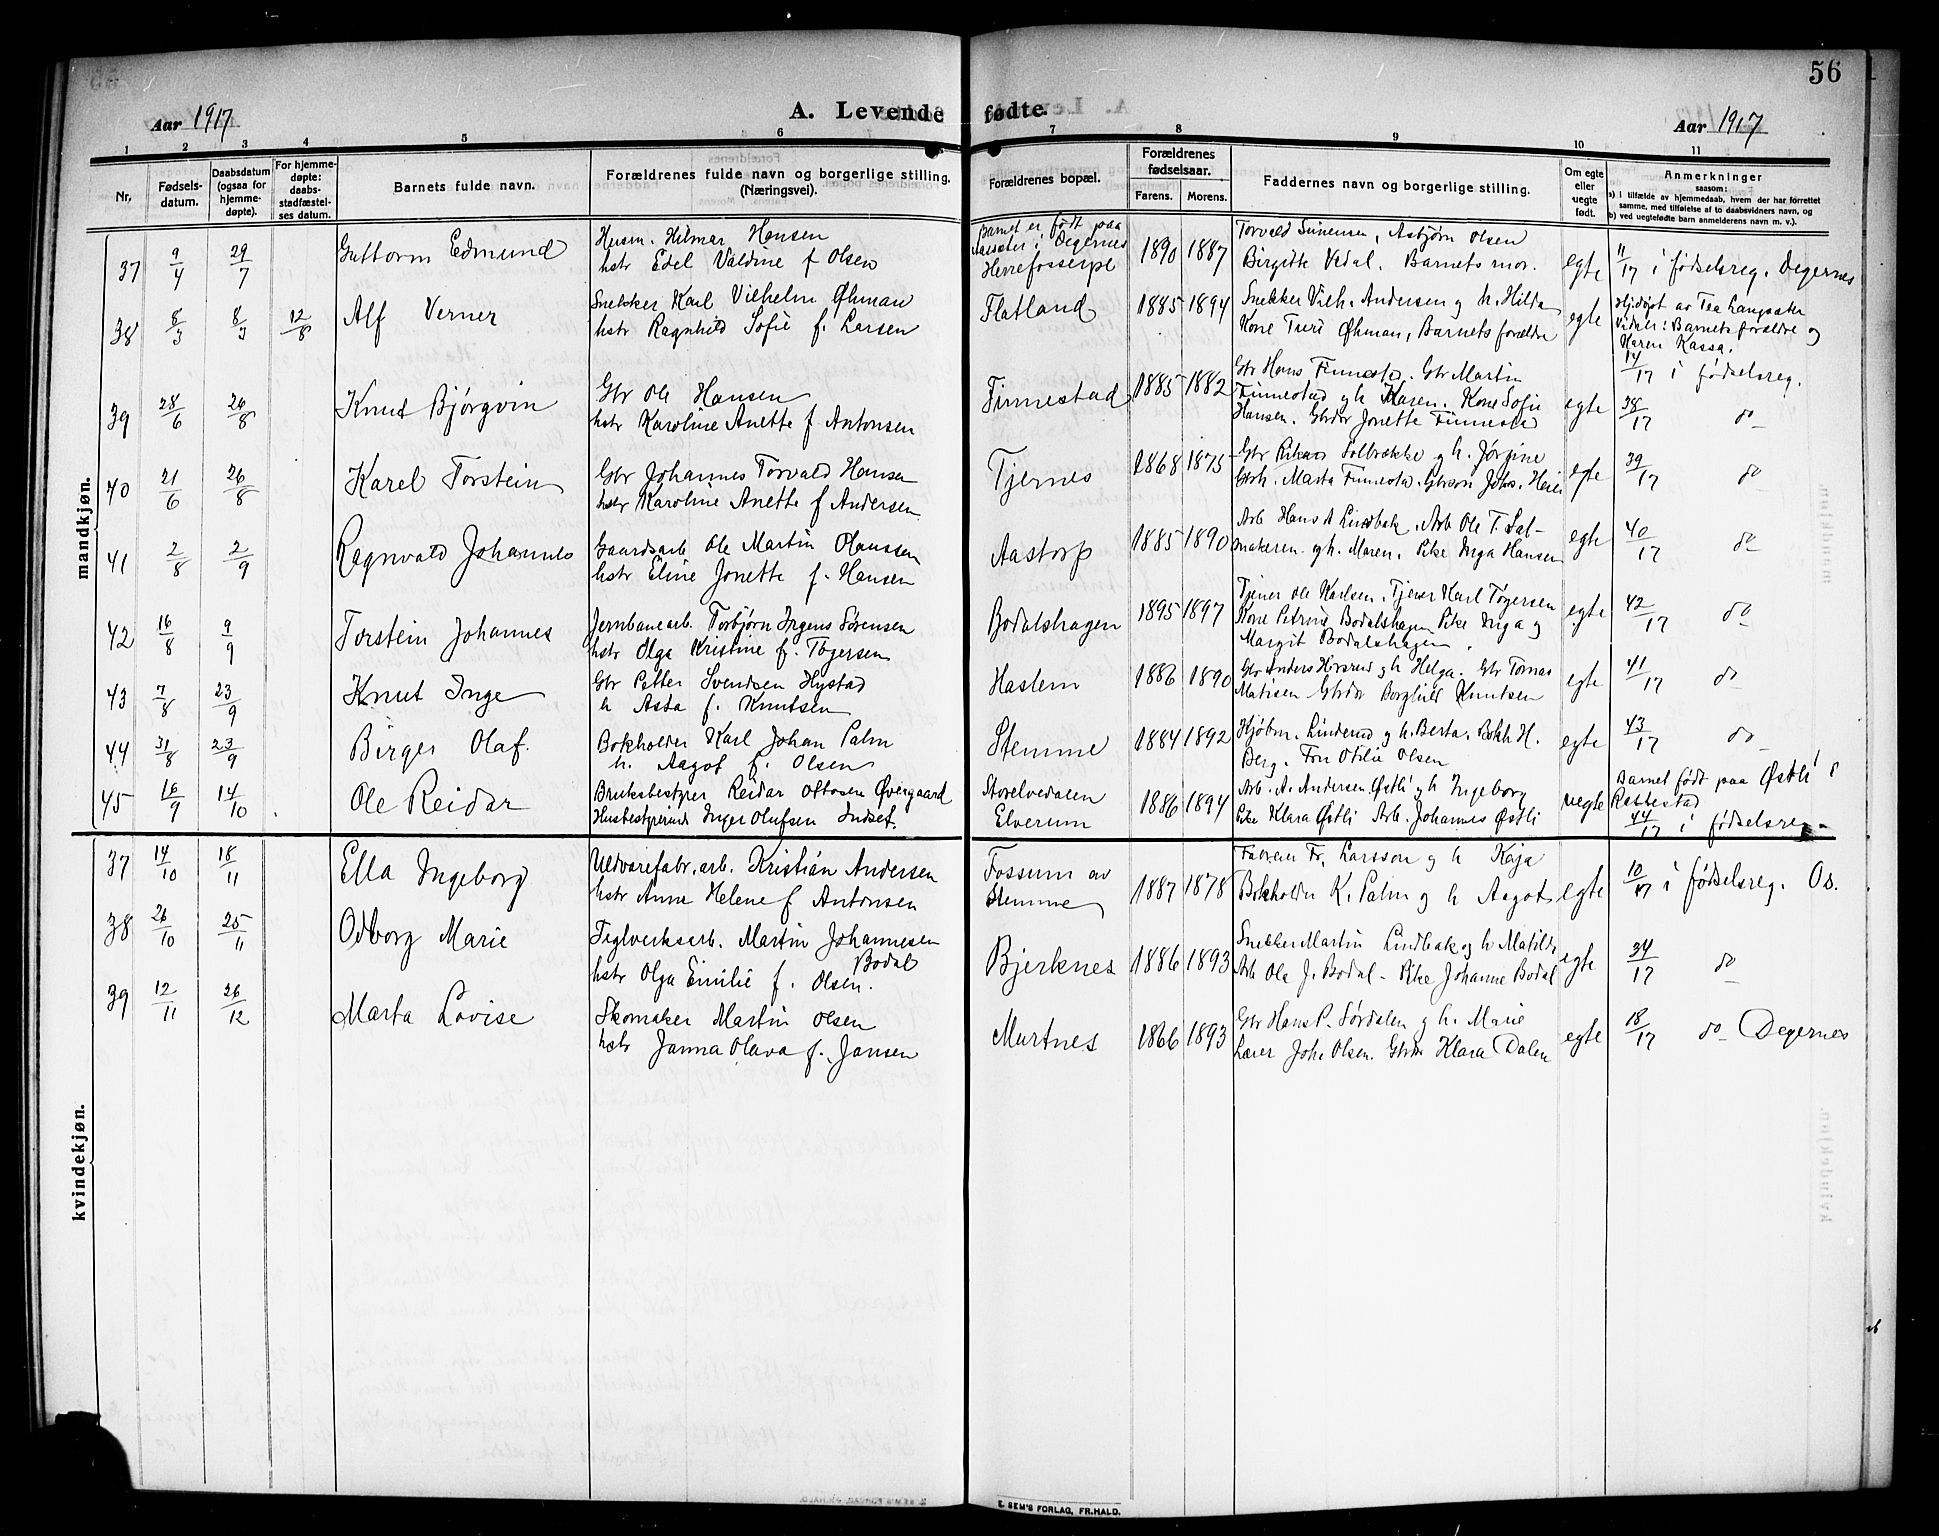 56
Aar 1917
A. Levende fødte.
Aar 1917
1 2 3 4 5 6 7 8 9 10 11
Nr. Fødsels-datum. Daabsdatum (ogsaa for hjemme-døpte). For hjemme-døpte: daabs-stadfæstel-ses datum. Barnets fulde navn. Forældrenes fulde navn og borgerlige stilling. (Næringsvei). Forældrenes bopæl. Forældrenes fødselsaar. Farens. Morens. Faddernes navn og borgerlige stilling. Om egte eller uegte født. Anmerkninger saasom: a) i tilfælde av hjemmedaab, hvem der har forrettet samme, med tilføielse af to daabsvidners navn, og b) ved uegtefødte barn anmelderens navn m. v.).
mandkjøn.
37 9/4 29/7 Guttorm Edmund Husm. Hilmar Hansen
hstr Edel Valdine f Olsen
Barnet er født paa
i Degernes
1890 1887 Torvald Simensen, Asbjørn Olsen
Birgitte Vedal. Barnets mor. egte 11/17 i fødselsreg. Degernes
38 8/3 8/3 12/8 Alf Verner Snekker Karl Vilhelm Øhman
hstr Ragnhild Sofie f. Larsen
Flatland 1885 1894 Snekker Vilh. Andersen og h. Hilda
Kone Turi Øhman, Barnets forældre egte
Hjdøpt av Tea Langsæter
Vidner: Barnets forældre og
Karen Kassa.
14/17 i fødselsreg.
39 28/6 26/8 Knut Bjørgvin Gbr Ole Hansen
hstr Karoline Anette f Antonsen
Finnestad 1885 1882 Gbr Hans Finnesta. Gbr Martin
Finnestad og h Maren. Kone Sofie
Hansen. Gbrdtr Jonette Finnesta egte 38/17 do
40 21/6 26/8 Karel Torstein Gbr Johannes Torvald Hansen
hstr Karoline Anette f Andersen
Tjernes 1868 1875 Gbr Solbrække og h. Jørgine
Marta Finnesta. Gbrsøn Johs. egte 39/17 do
41 2/8 2/9 Ragnvald Johannes Gaardsarb Ole Martin Olaussen
hstr Eline Jonette f. Hansen
Aastorp 1885 1890 Arb Hans A Lindbæk. Arb Ole T. Sal-
makeren og h. Maren. Pike Inga Hansen egte 40/17 do
42 16/8 9/9 Torstein Johannes Jernbanearb. Torbjørn Jrgens Sørensen
hstr Olga Kristine f. Tøgersen
Bodalshagen 1895 1897 Tjener Ole Karlsen. Tjener Karl Tøgersen
Kone Petrine Bodalshagen Pike Inga og
Margit Bodalshagen. egte 42/17 do
43 7/8 23/9 Knut Inge Gbr Petter Svendsen Hystad
h Asta f. Knutsen
Haslem 1886 1890 Gbr Anders og h Helga. Gbr Tomas
Matisen Gbrdtr Borghild Knutsen egte 41/17 do
44 31/8 23/9 Birger Olaf. Bokholder Karl Johan Palm
h. Aagot f. Olsen
Stemme 1884 1892 Kjøbm. Linderud og h. Berta. Bokh H.
Berg. Frn Otilie Olsen egte 43/17 do
45 16/9 14/10 Ole Reidar Bruksbestyrer Reidar Ottosen Øvergaard
Husbestyrerinde Inger Olufsen Indset.
Storelvedalen
Elverum 1886 1894 Arb. A. Andersen Østli og h Ingeborg
Pike Klara Østli Arb. Johannes Østli uegte
Barnet født paa Østli i
Rakkestad
44/17 i fødselsreg.
kvindekjøn.
37 14/10 18/11 Ella Ingeborg Uldvarefabr. arb. Kristian Andersen
hstr Anne Helene f Antonsen
Fossum av
Stemme 1887 1878 Farver Fr. Larsson og h Kaja
Bokholder K. Palm og h Aagot egte 10/17 i fødselsreg. Os.
38 26/10 25/11 Odborg Marie Teglverksarb. Martin Johannesen
Bodal
hstr Olga Emilie f. Olsen.
Bjerknes 1886 1893 Snekker Martin Lindbæk og h Matilde
Arb Ole J. Bodal - Pike Johanne Bodal egte 34/17 do
39 12/11 26/12 Marta Lovise Skomaker Martin Olsen
hstr Janna Olava f. Jansen
Murtnes 1866 1893 Gbr Hans P. Sørdalen og h. Marie
Lærer Joh. Olsen. Gbrdtr Klara Dalen egte 18/17 do Degernes
E. SEM'S FORLAG, FR.HALD.